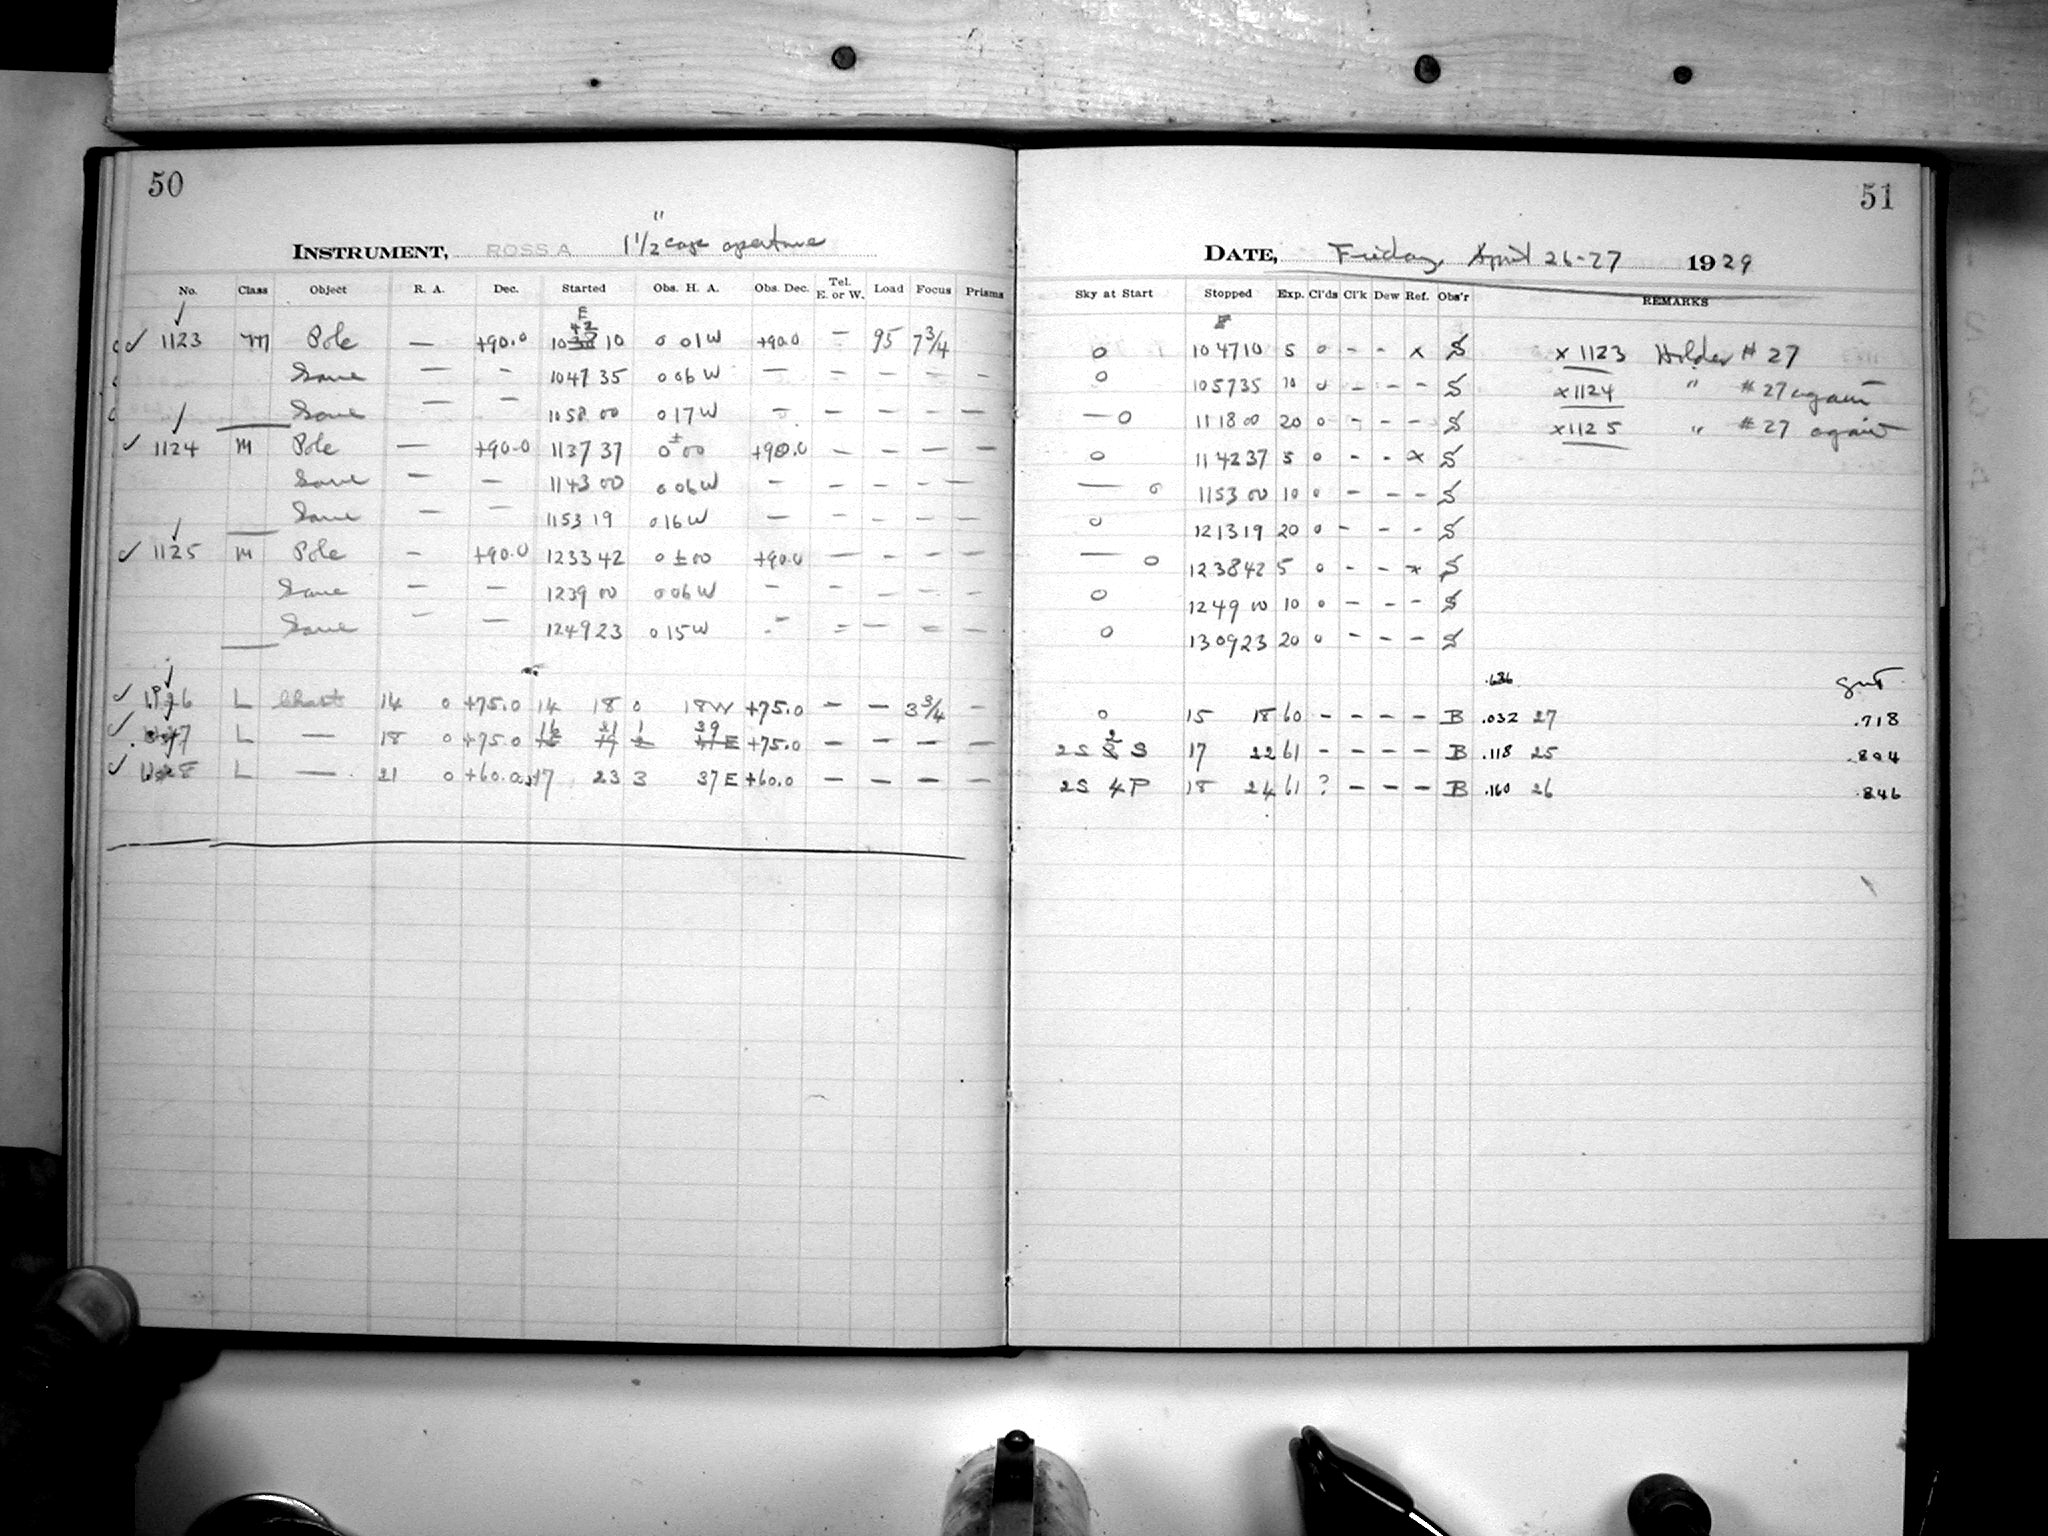 50
INSTRUMENT, ROSS A 1 1/2" cap aperture
No. Class Object R. A. Dec. Started Obs. H. A. Obs. Dec. Tel. E. or W. Load Focus Prisms
E
✓ 1123 M Pole — +90.0 10 42 10 0 01 W +90.0 — 95 7 3/4
Same — — 10 47 35 0 06 W — — — — —
Same — — 10 58 00 0 17 W — — — — —
✓ 1124 M Pole — +90.0 11 37 37 0 ± 00 +90.0 — — — —
Same — — 11 43 00 0 06 W — — — — —
Same — — 11 53 19 0 16 W — — — — —
✓ 1125 M Pole — +90.0 12 33 42 0 ± 00 +90.0 — — — —
Same — — 12 39 00 0 06 W — — — — —
Same — — 12 49 23 0 15 W — — — — —
✓ 1126 L Chart 14 0 +75.0 14 18 0 18 W +75.0 — — 3 3/4 —
✓ L — 18 0 +75.0 16 21 1 39 E +75.0 — — — —
✓ L — 21 0 +60.0 17 23 3 37 E +60.0 — — — —
51
DATE, Friday, April 26-27 1929
Sky at Start Stopped Exp. Cl'ds Cl'k Dew Ref. Obs'r REMARKS
0 10 47 10 5 0 - - x S x 1123 Holder # 27
0 10 57 35 10 0 - - - S x 1124 " # 27 again
— 0 11 18 00 20 0 - - - S x 1125 " # 27 again
0 11 42 37 5 0 - - x S
— 0 11 53 00 10 0 - - - S
0 12 13 19 20 0 - - - S
— 0 12 38 42 5 0 - - x S
0 12 49 00 10 0 - - - S
0 13 09 23 20 0 - - - S
.686 GMT
0 15 18 60 - - - - B .032 27 .718
2S 2 S 17 22 61 - - - - B .118 25 .804
2S 4P 18 24 61 ? - - - B .160 26 .846